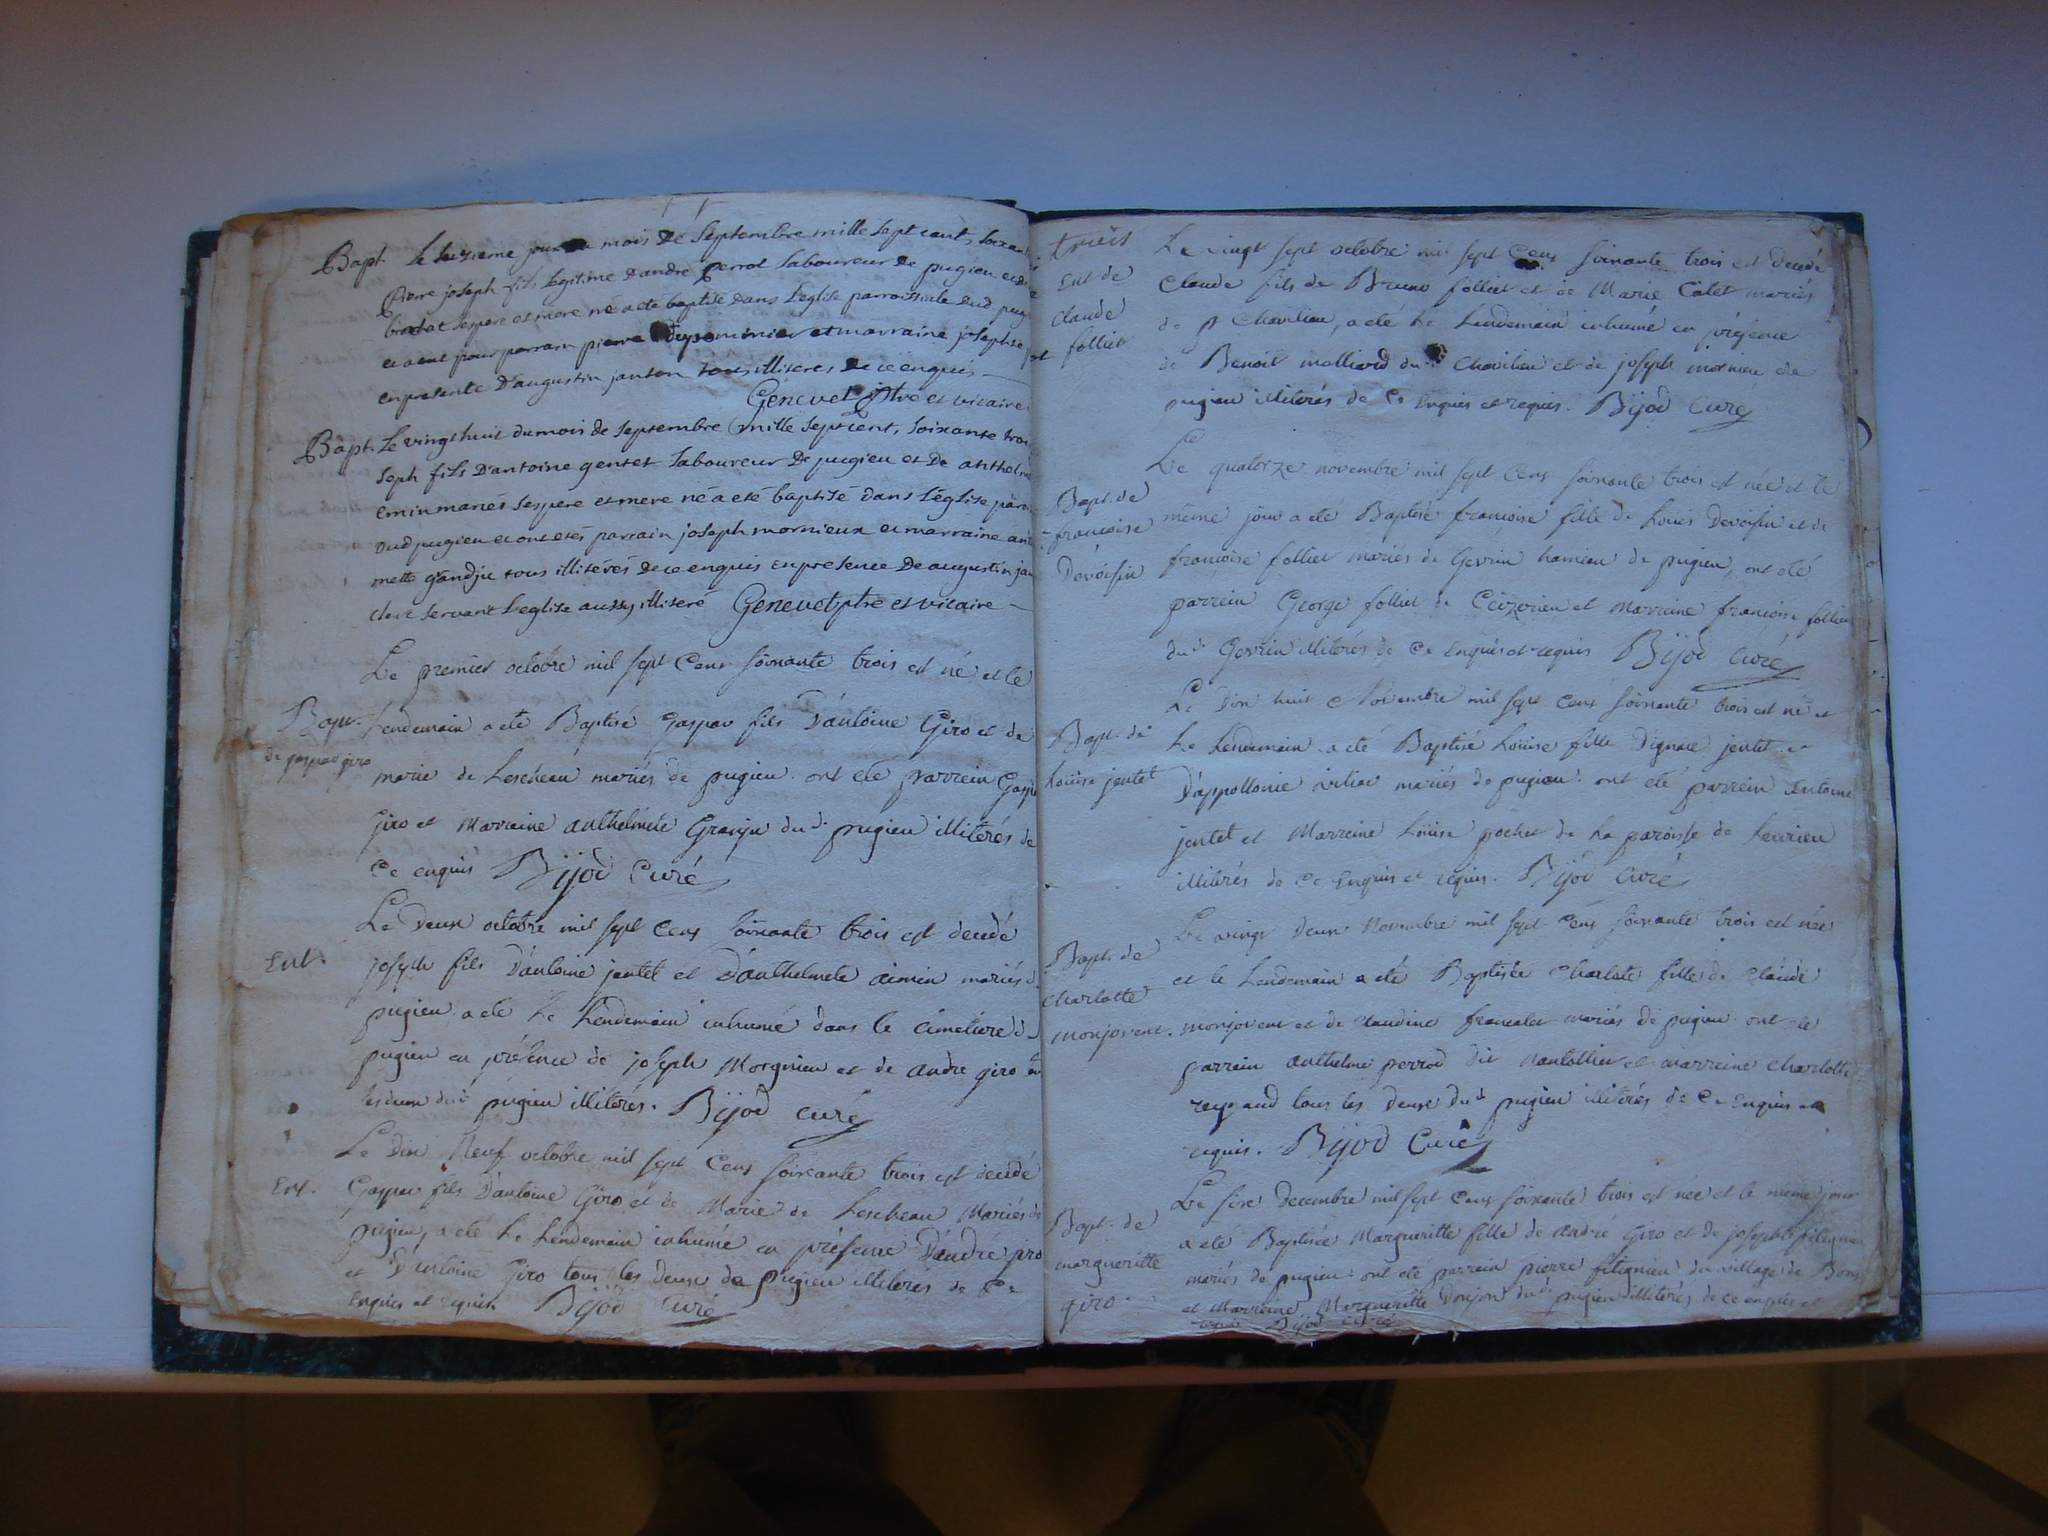 Bapt. Le seizieme jour du mois de Septembre mille sept cent, soixan
Pierre joseph fils legitime d'andré perrot laboureur de pugieu et de
ses pere et mere né a eté baptisé dans l'eglise parroissiale dud. pug
et a eut pour parrain pierre et marraine josephte
en presente d'augustin janton tous illiteres de ce enquis
Genevet ptre et vicaire
Bapt. Le vingt huit du mois de septembre mille sept cent, soixante troi
seph fils d'antoine gentet laboureur de pugieu et de anthelm
emin mariés ses pere et mere né a eté baptisé dans l'église paro
dud pugieu et ont etés parrain joseph mornieux et marraine an
mette grandju tous illiterés de ce enquis en presence de augustin jan
clerc servant l'eglise aussy illiteré Genevet ptre et vicaire
Le premier octobre mil sept cens soixante trois est né et le
Bapt. Lendemain a eté Baptisé Gaspar fils d'antoine Giro et de
de gaspar giro
marie de Lescheau mariés de pugieu. ont eté parrein Gaspa
Giro et Marreine anthelmete Granju dud. pugieu illiterés de
ce enquis Bijod Curé
Le Deux octobre mil sept cens soixante trois est decedé
Ent. joseph fils d'antoine jentet et d'anthelmete aimin mariés d
pugieu. a eté Le Lendemain inhumé dans le cimetiere de
pugieu en présence de joseph Morgnieu et de andre giro
les deux dud. pugieu illiterés. Bijod curé
Le Dix Neuf octobre mil sept Cens soixante trois est decedé
Ent. Gaspar fils d'antoine Giro et de Marie de Lescheau Mariés de
pugieu, a eté Le Lendemain inhumé en présence d'andré giro
et d'antoine Giro tous les deux de pugieu illiteres de Ce
Enquis et requis Bijod Curé
Le vingt sept octobre mil sept Cens soixante trois est decedé
Ent de
claude
folliet
Claude fils de Bruno folliet et de Marie Calet mariés
de Chavilieu, a eté le Lendemain inhumé en présence
de Benoit malliard du Chavilieu et de joseph mornieu de
pugieu illiterés de Ce Enquis et requis. Bijod Curé
Le quatorze novembre mil sept Cens soixante trois est née et le
Bapt. de
françoise
Devoisin
même jour a eté Baptisé françoise fille de Louis Devoisin et de
françoise folliet mariés de Gevrin hameau de pugieu, ont eté
parrein George folliet de Ceizerieu et Marreine françoise folliet
dud. Gevrin illiterés de Ce Enquis et requis Bijod Curé
Le Dix huit Novembre mil sept Cens soixante trois est né et
Bapt. de
Louise jentet
Le Lendemain a eté Baptisé Louise fille d'ignace jentet et
D'appollonie mariés de pugieu. ont eté parrein Antoine
jentet et Marreine Louise pochet de la paroisse de
illiterés de Ce Enquis et requis. Bijod Curé
Le vingt Deux Novembre mil sept Cens soixante trois est née
Bapt. de
charlotte
monjovent.
et le Lendemain a eté Baptisée Charlote fille de Claude
monjovent et de Claudine francalet mariés de pugieu. ont eté
parrain anthelme perrod dit nantollier et marreine charlotte
reynaud tous les Deux dud. pugieu illiterés de Ce Enquis et
requis. Bijod Curé
Le sixe Decembre mil sept Cens soixante trois est née et le même jour
Bapt. de
margueritte
giro.
a eté Baptisée Margueritte fille de André Giro et de josephte
mariés de pugieu. ont eté parrain pierre filignieu du village de Bons
et Marreine Margueritte Donjon dud. pugieu illiterés de ce enquis et
requis Bijod curé